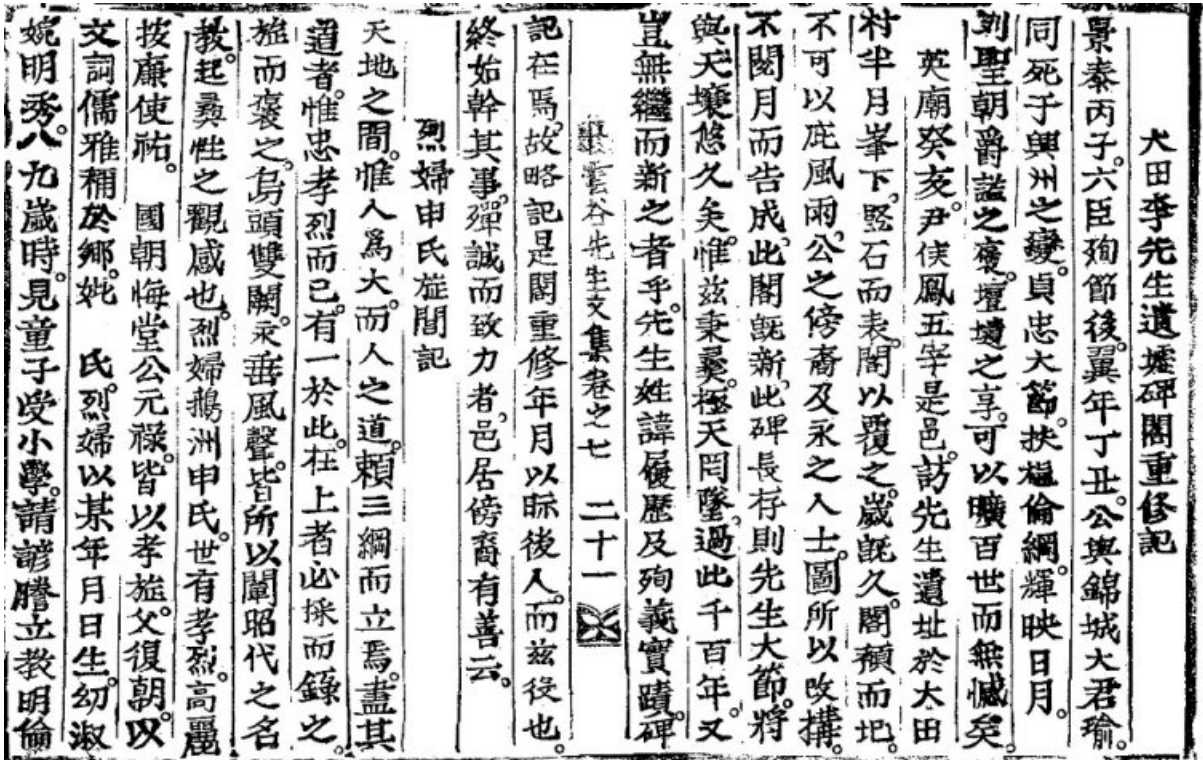 大田李先生遺墟碑閣重修記
景泰丙子。六臣殉節後。翼年丁丑。公與錦城大君瑜。
同死于興州之變。貞忠大節。扶樹倫綱。輝映日月。
則聖朝爵謚之褒。壇墠之享。可以曠百世而無憾矣。
英廟癸亥。尹侯鳳五宰是邑。訪先生遺址於大田
村半月峯下。竪石而表。閣以覆之。歲旣久。閣頹而圮。
不可以庇風雨。公之傍裔及永之人士。圖所以改搆。
不閱月而告成。此閣旣新。此碑長存。則先生大節。將
與天壤悠久矣。惟玆秉彛。極天罔墜。過此千百年。又
豈無繼而新之者乎。先生姓諱履歷及殉義實蹟。碑
雲谷先生文集卷之七 二十一
記在焉。故略記是閣重修年月以眎後人。而玆役也。
終始幹其事。殫誠而致力者。邑居傍裔有善云。
烈婦申氏旌閭記
天地之間。惟人爲大。而人之道。賴三綱而立焉。盡其
道者。惟忠孝烈而已。有一於此。在上者必採而錄之。
旌而褒之。烏頭雙闕。永垂風聲。皆所以闡昭代之名
敎。起彛性之觀感也。烈婦鵝洲申氏。世有孝烈。高麗
按廉使祐。 國朝悔堂公元祿。皆以孝旌。父復朝。以
文詞儒雅稱於鄕。妣 氏。烈婦以某年月日生。幼淑
婉明秀。八九歲時。見童子受小學。請諺謄立敎明倫